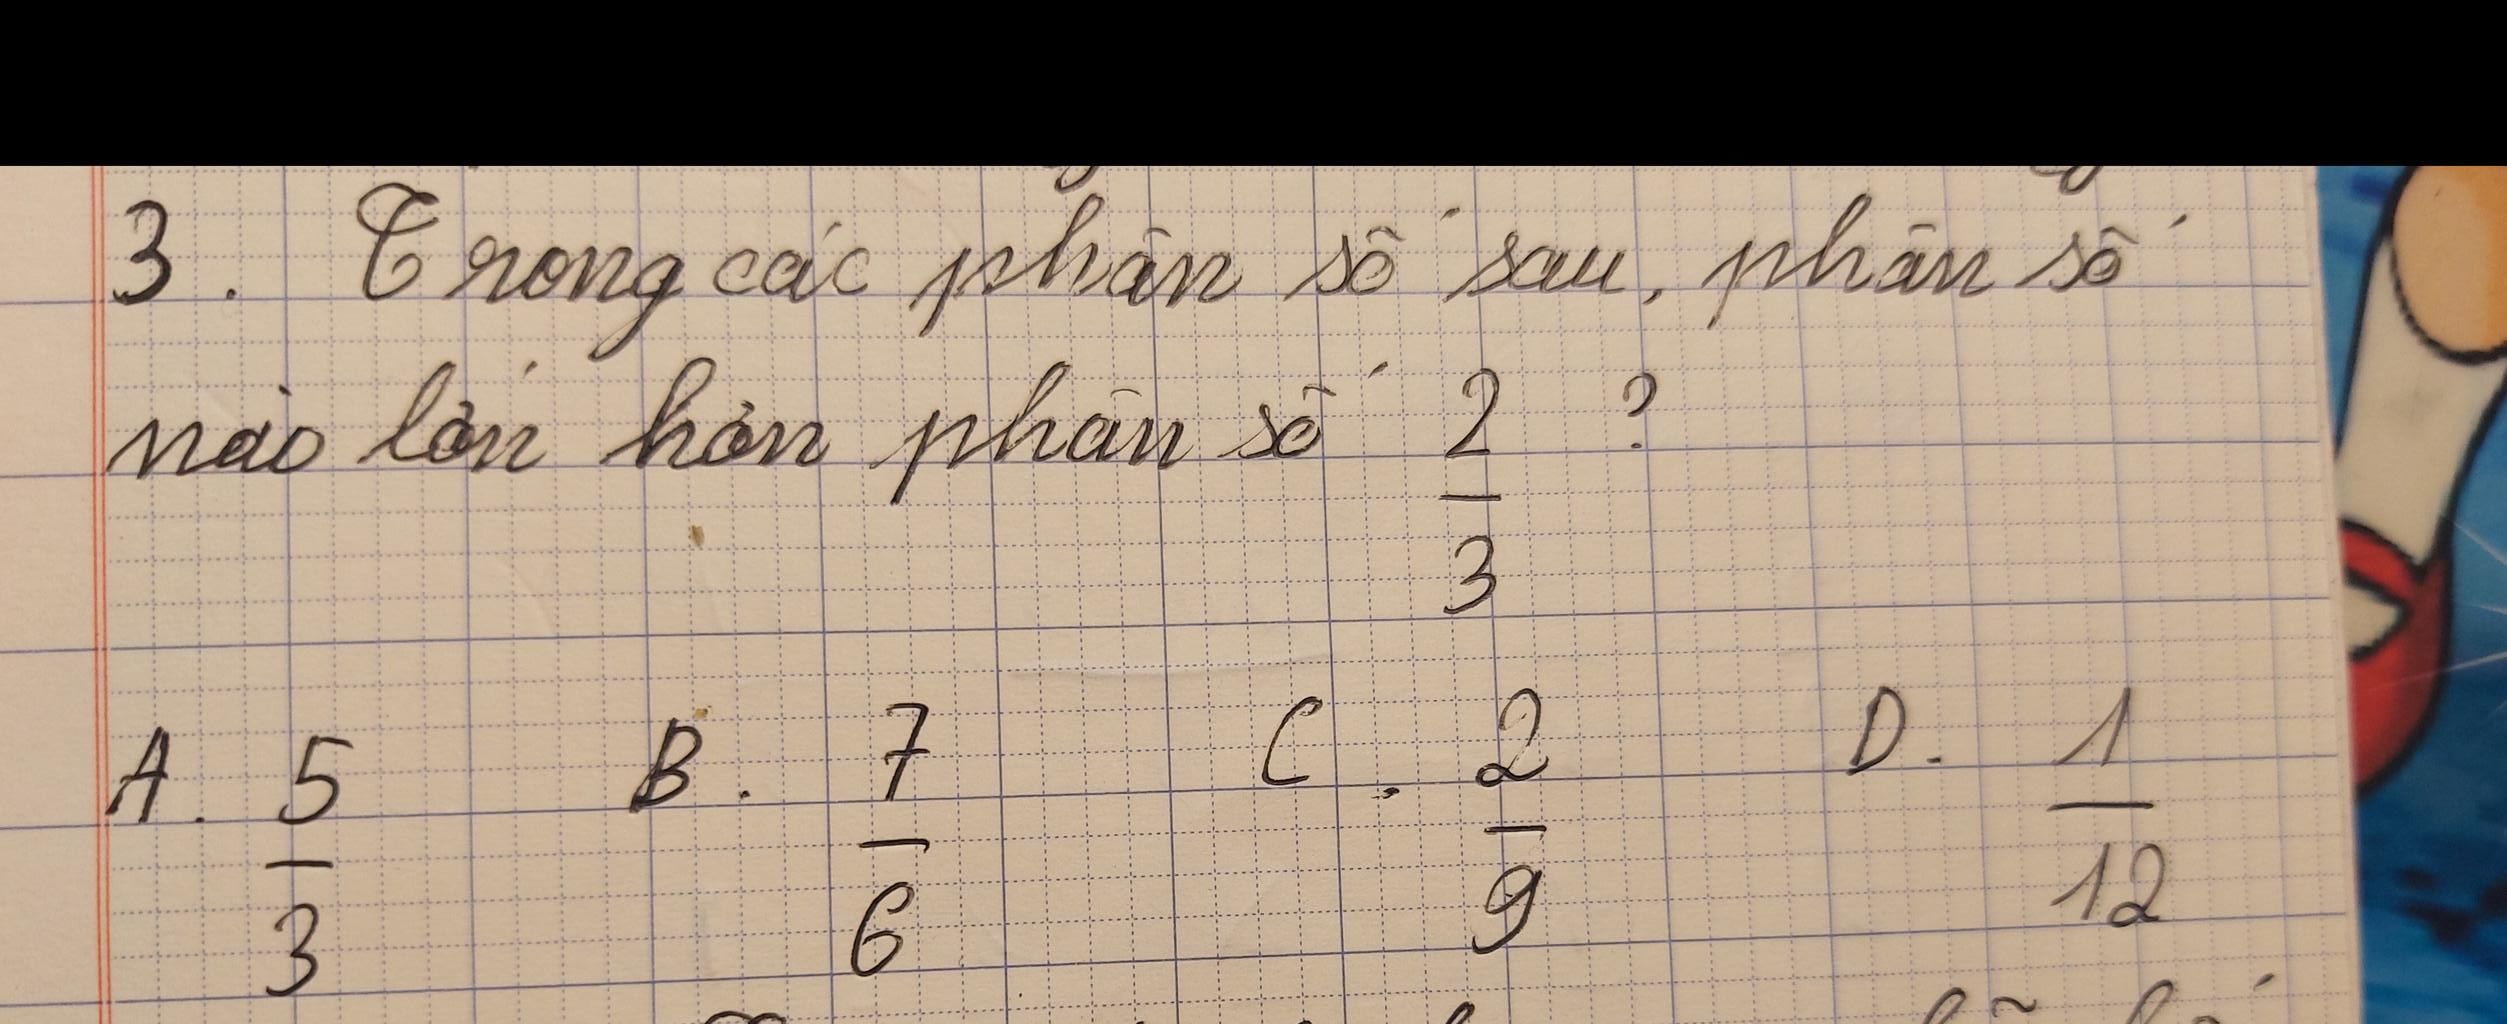 3. Trong các phân số sau, phân số
nào lớn hơn phân số 2/3 ?
A. 5/3 B. 7/6 C. 2/9 D. 1/12